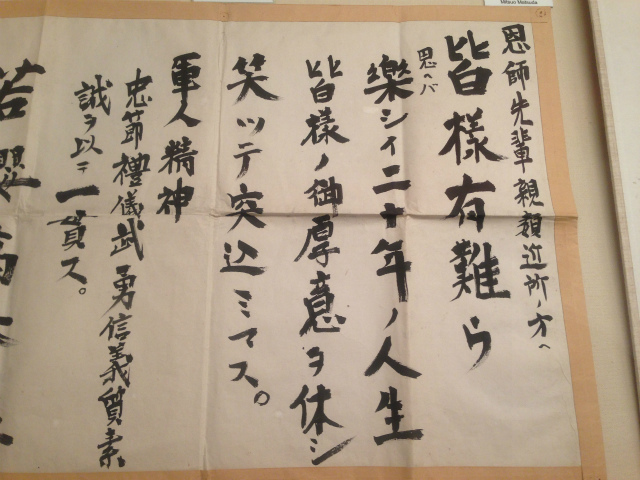 Mitsuo Matsuda
恩師先輩親類近所ノ方へ
皆様有難ウ
思へバ
樂シイ二十年ノ人生
皆様ノ御厚意ヲ休シ
笑ツテ突込ミマス。
軍人精神
忠節禮儀武勇信義質素
誠ヲ以テ一貫ス。
若櫻